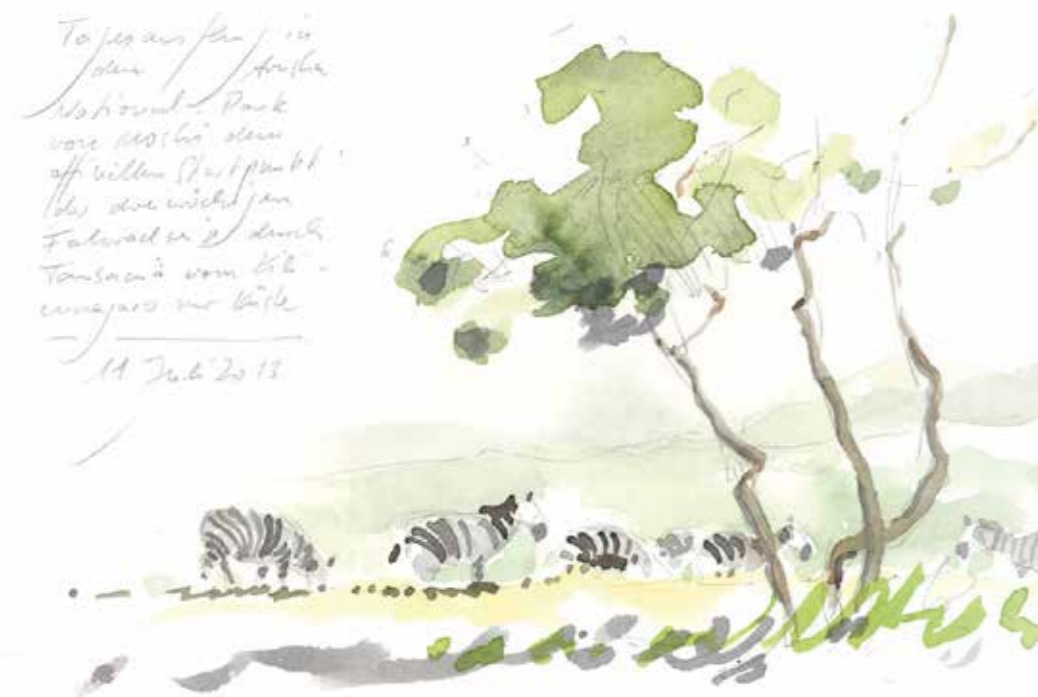 Tagesausflug in
den Arusha
National-Park
von Moshi dem
offiziellen Startpunkt
der dreiwöchigen
durch
Tansania vom Kili-
manjaro zur Küste
11 Juli 2013